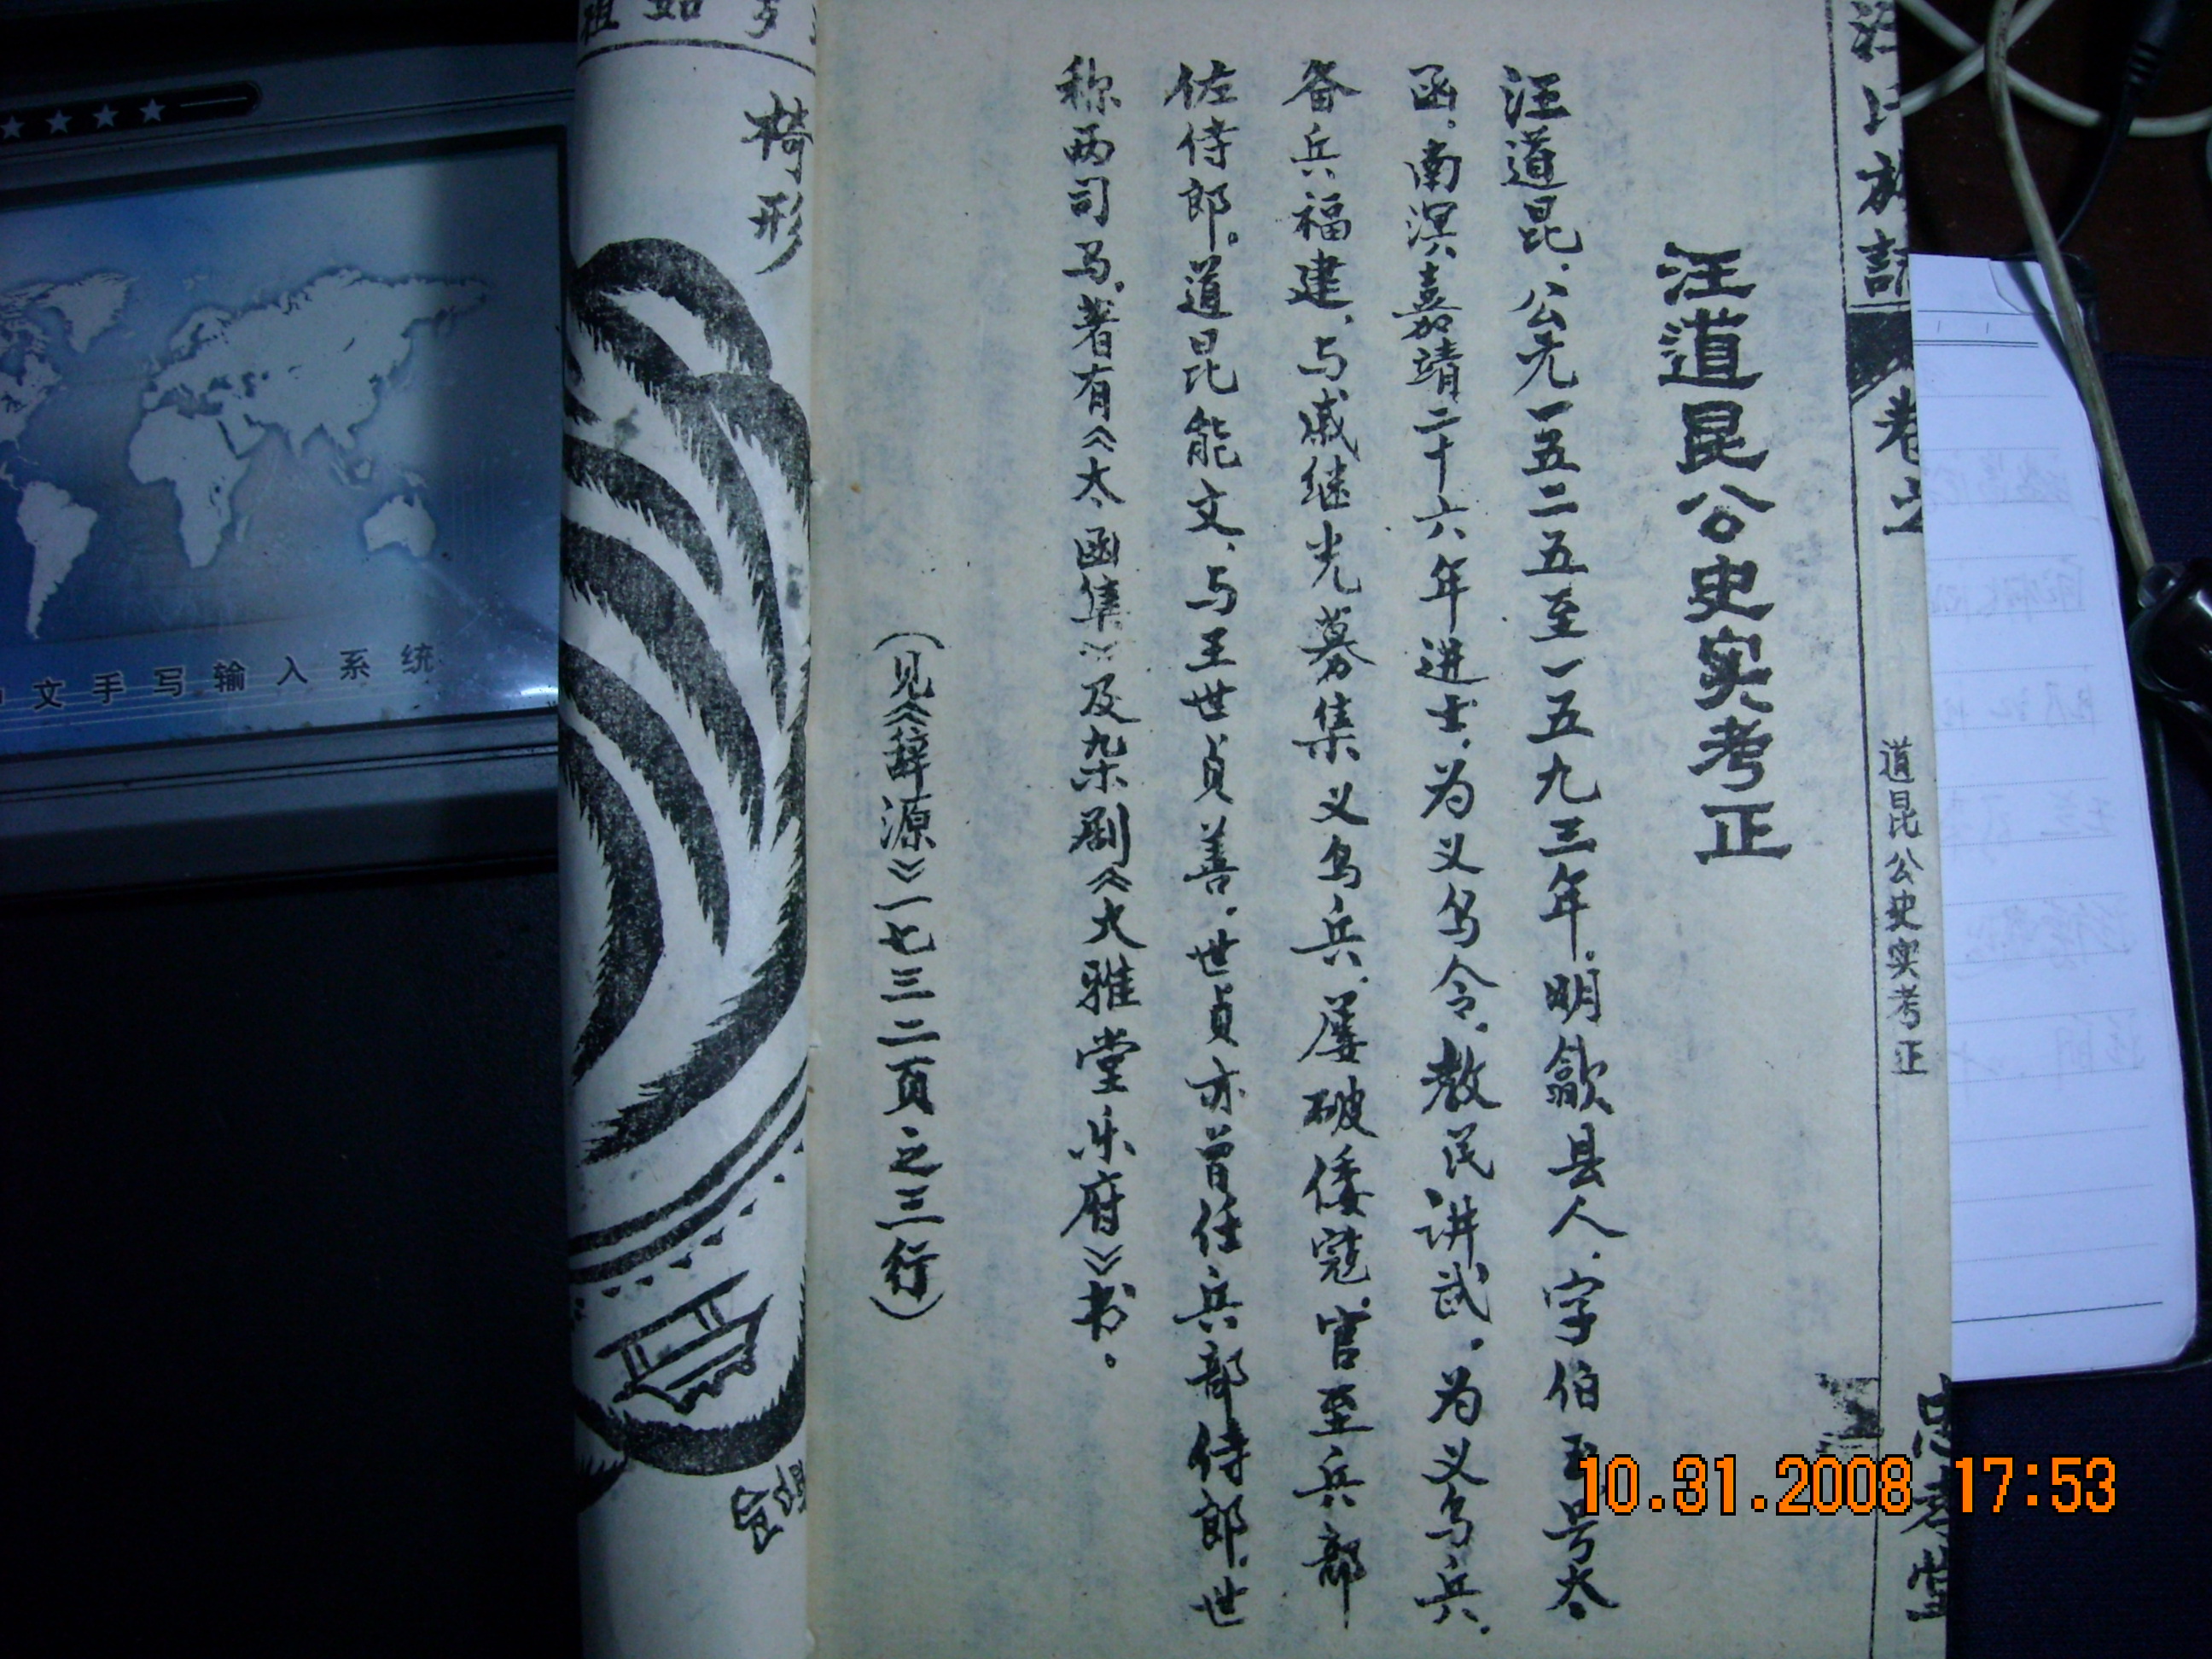 汪道昆公史实考正
汪道昆、公元一五二五至一五九三年。明歙县人.字伯玉号太
函.南溟.嘉靖二十六年进士.为义乌令.教民讲武.为义乌兵.
备兵福建.与戚继光募集义乌兵.屡破倭寇.官至兵部
佐侍郎。道昆能文.与王世贞善.世贞亦曾任兵部侍郎.世
称两司马.著有《太函集》及杂剧《大雅堂乐府》书。
（见《辞源》一七三二页之三行）
卷之
道昆公史实考正
忠孝堂
椅形
文手写输入系统
10.31.2008 17:53